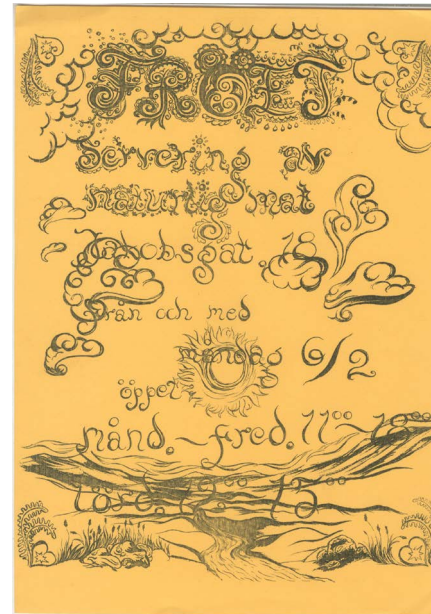 FRÖET
Servering av
naturlig mat
Jakobsgat. 18
från och med
måndag 6/2
öppet
månd.-fred. 11⁰⁰-18⁰⁰
lörd. 12⁰⁰ 15⁰⁰